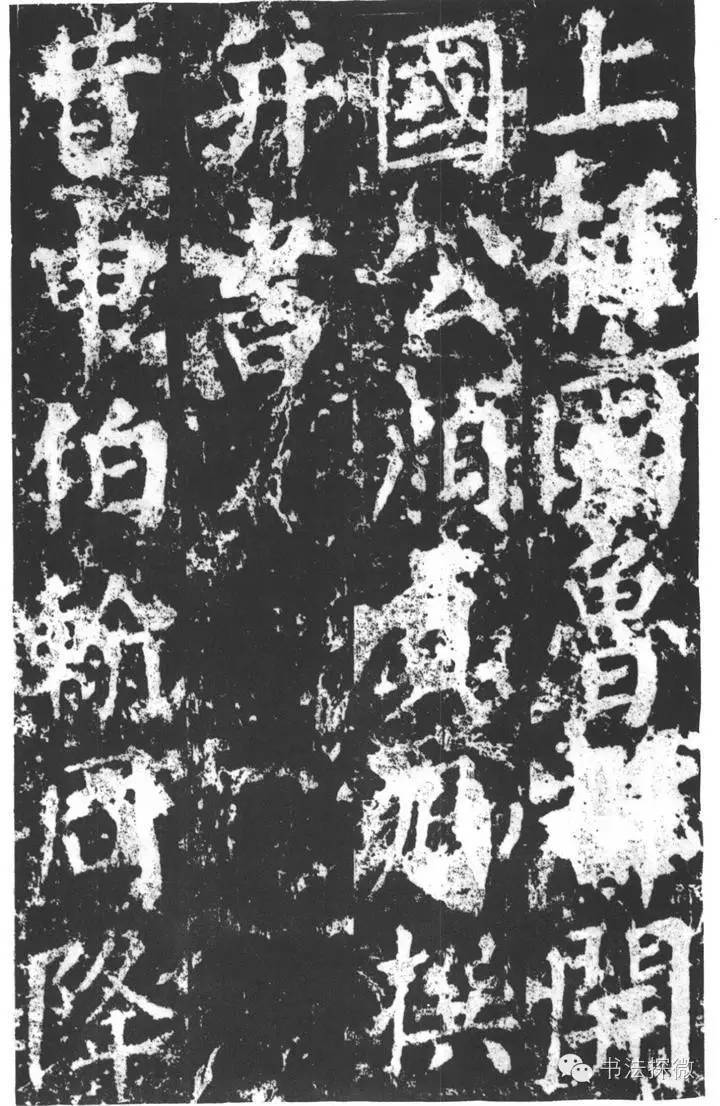 上柱國魯郡開
國公顏真卿撰
并書
昔申伯翰周降
书法探微